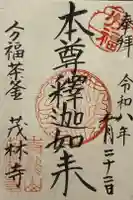 奉拝
令和八年
月二十二日
本尊釋迦如来
分福茶釜
茂林寺